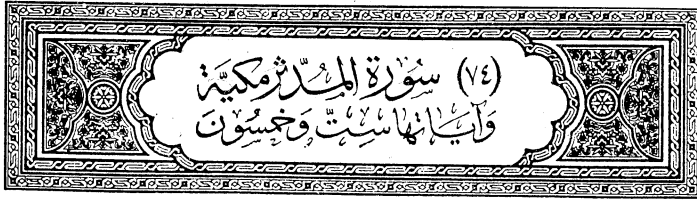 (٧٤) سُورَة المُدَّثر مَكيَّة
وَآيَاتهَا سِتّ وَخمسُونَ